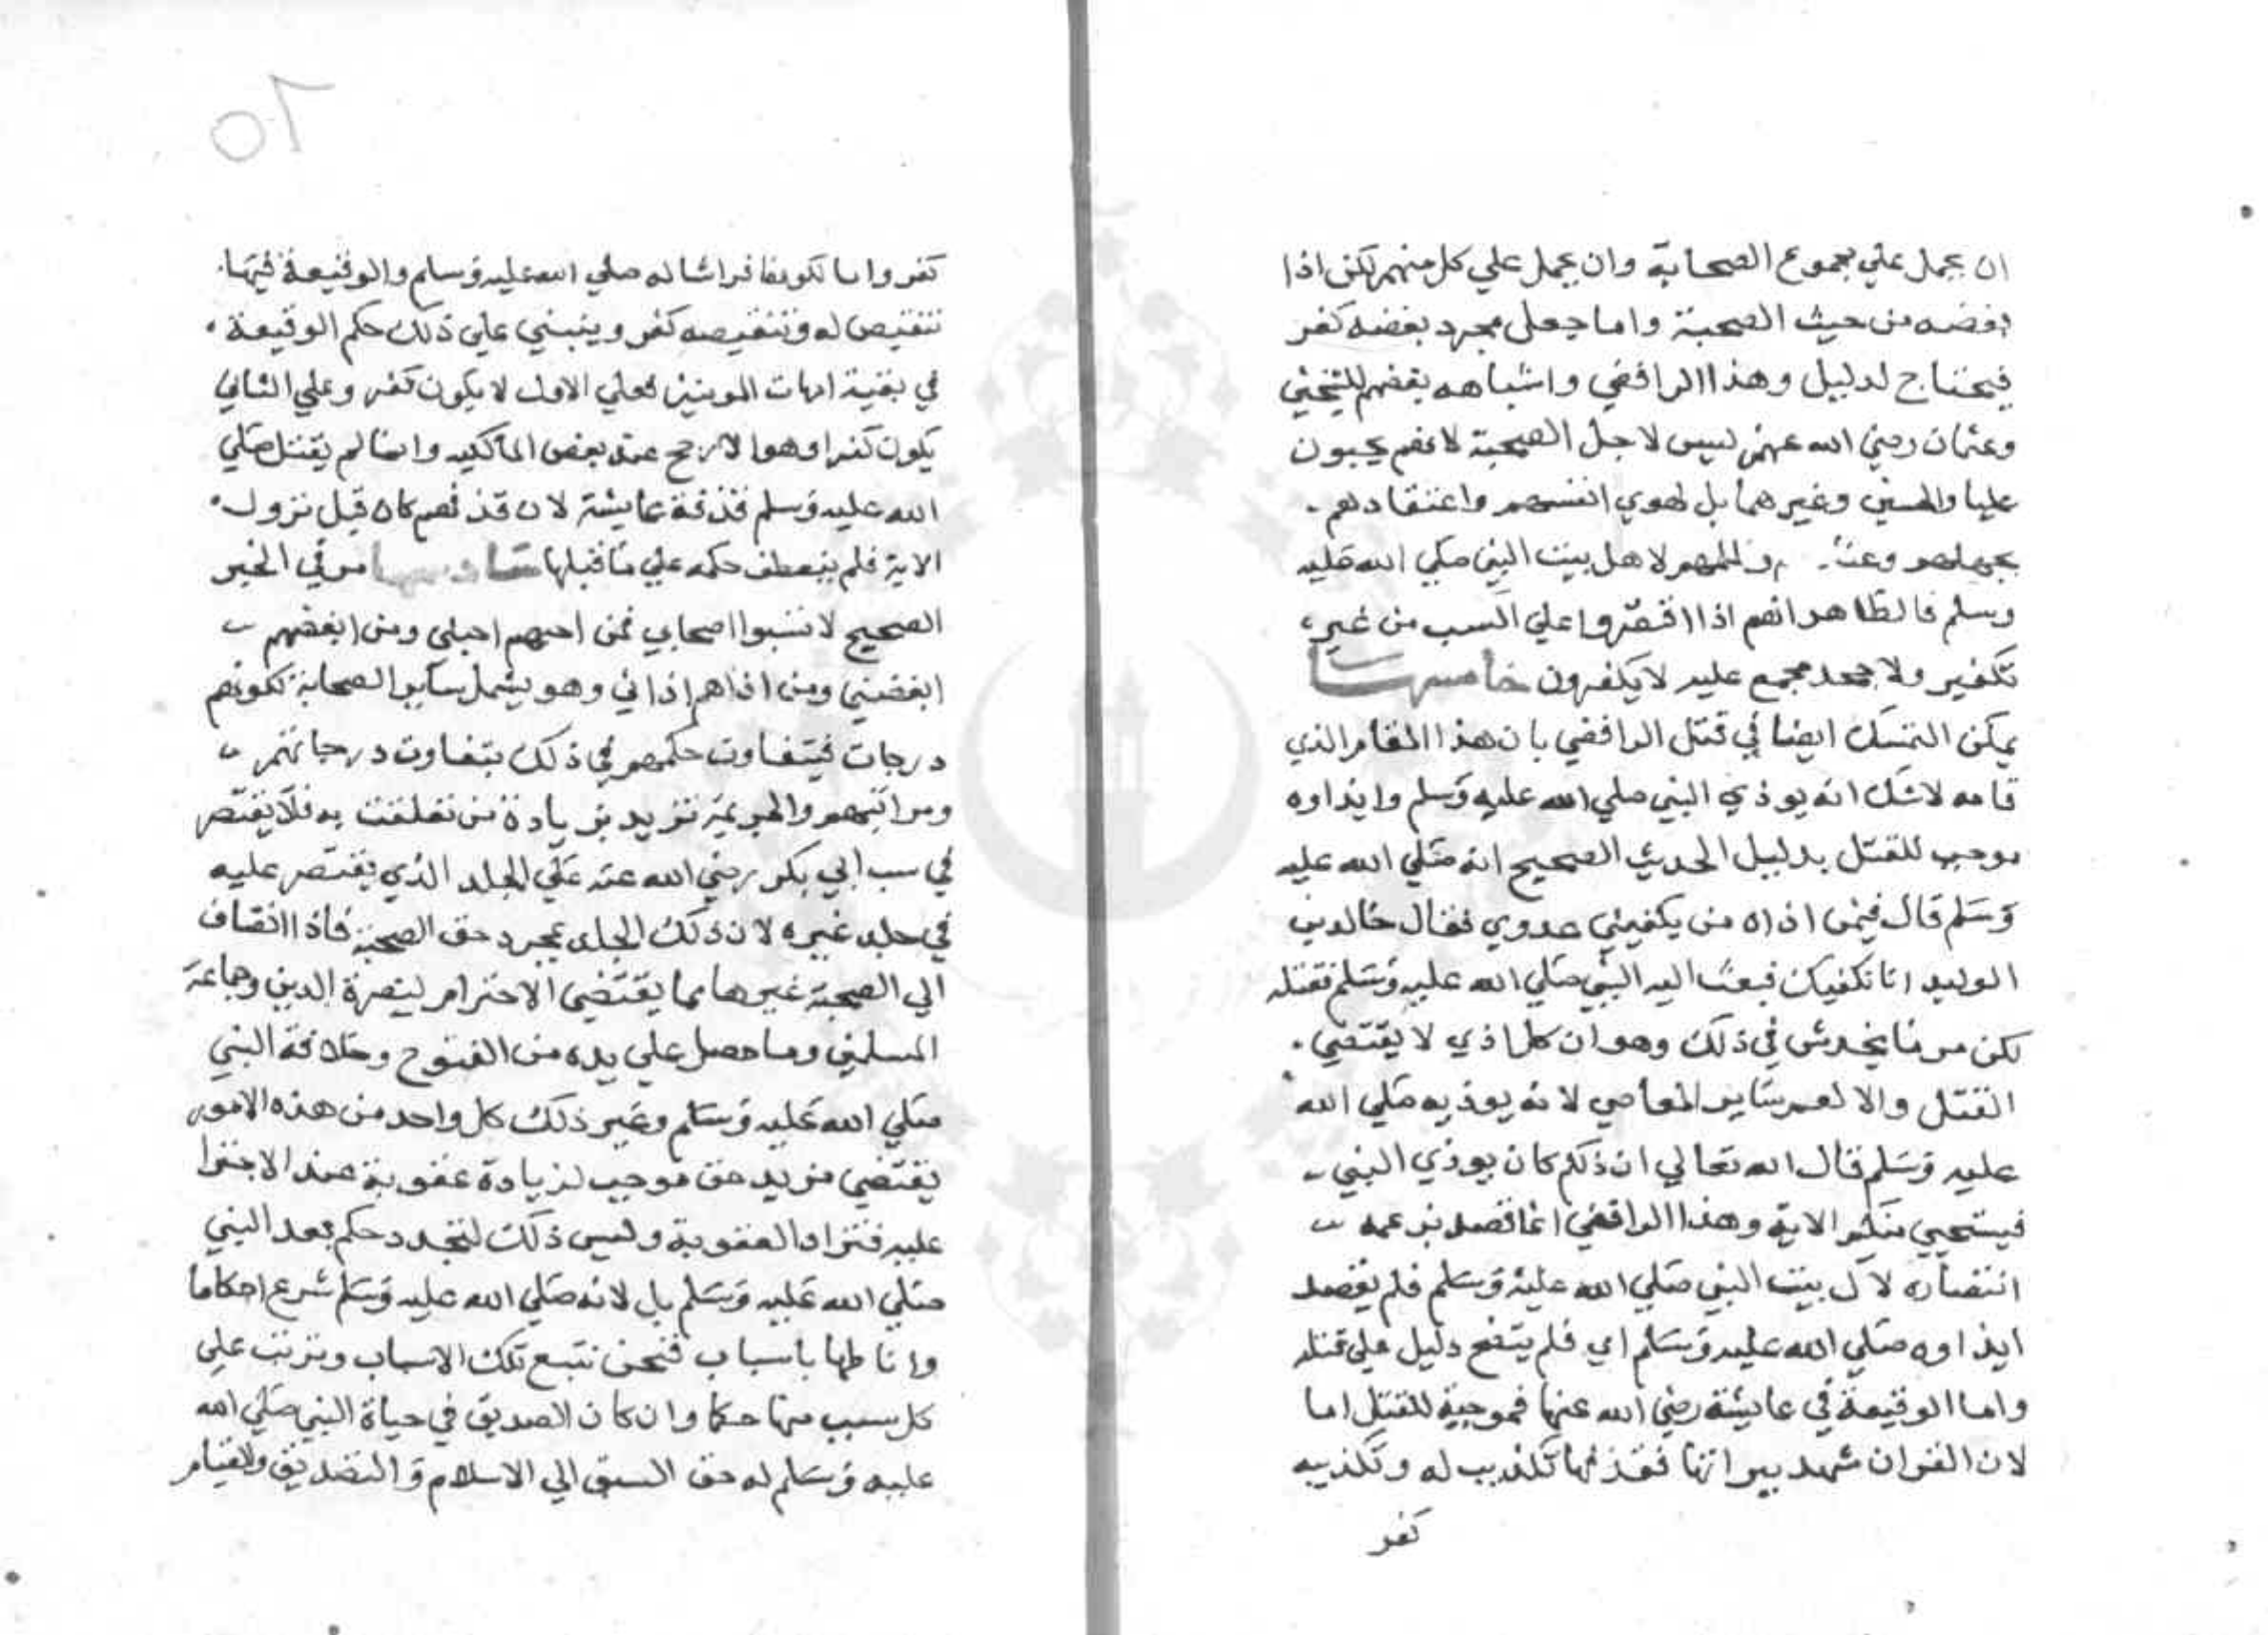 ان يحمل علي مجموع الصحابة وان يحمل علي كل منهم لكن اذا
بغضه من حيث الصحبة واما جعل مجرد بغضه كفر
فيحتاج لدليل وهذا الرافضي واشباهه بغضهم للشيخين
وعثمان رضي الله عنهم ليس لاجل الصحبة لانهم يحبون
عليا والحسنين وغيرهما بل لهوي انفسهم واعتقادهم
بجهلهم وظلمهم لاهل بيت النبي صلي الله عليه
وسلم فالظاهر انهم اذا اقتصروا علي السب من غير
تكفير ولا جحد مجمع عليه لا يكفرون خامسها
يمكن التمسك ايضا في قتل الرافضي بان هذا المقام الذي
قامه لاشك انه يوذي النبي صلي الله عليه وسلم وايذاوه
موجب للقتل بدليل الحديث الصحيح انه صلي الله عليه
وسلم قال فيمن اذاه من يكفيني عدوي فقال خالد بن
الوليد انا نكفيك فبعث اليه النبي صلي الله عليه وسلم فقتله
لكن مر ما يخدش في ذلك وهو ان كل اذي لا يقتضي
القتل والا لعم ساير المعاصي لانه يوذيه صلي الله
عليه وسلم قال الله تعالي ان ذلكم كان يوذي النبي
فيستحيي منكم الاية وهذا الرافضي انما قصد بزعمه
انتصاره لال بيت النبي صلي الله عليه وسلم فلم يقصد
ايذاوه صلي الله عليه وسلم اي فلم يتضح دليل علي قتله
واما الوقيعة في عايشة رضي الله عنها فموجبة للقتل اما
لان القران شهد ببراتها فقذفها تكذيب له وتكذيبه
كفر
٦٥
كفر واما لكونها فراشا له صلي الله عليه وسلم والوقيعة فيها
تنقيص له وتنقيصه كفر وينبني علي ذلك حكم الوقيعة
في بقية امهات المومنين فعلي الاول لا يكون كفر وعلي الثاني
يكون كفرا وهو الارجح عند بعض المالكيه وانما لم يقتل صلي
الله عليه وسلم قذفة عايشة لان قذفهم كان قبل نزول
الاية فلم ينعطف حكمه علي ما قبلها سادسها مر في الخبر
الصحيح لا تسبوا اصحابي فمن احبهم احبني ومن ابغضهم
ابغضني ومن اذاهم اذاني وهو يشمل ساير الصحابة لكونهم
درجات فيتفاوت حكمهم في ذلك بتفاوت درجاتهم
ومراتبهم والجريمة تزيد بزيادة من تعلقت به فلا يقتصر
في سب ابي بكر رضي الله عنه علي الجلد الذي يقتصر عليه
في جلد غيره لان ذلك الجلد بمجرد حق الصحبة فاذا انضاف
الي الصحبة غيرها مما يقتضي الاحترام لنصرة الدين وجماعة
المسلمين وما حصل علي يده من الفتوح وخلافة النبي
صلي الله عليه وسلم وغير ذلك كل واحد من هذه الامور
يقتضي مزيد حق موجب لزيادة عقوبة عند الاجترا
عليه فتزاد العقوبة وليس ذلك لتجدد حكم بعد النبي
صلي الله عليه وسلم بل لانه صلي الله عليه وسلم شرع احكاما
واناطها باسباب فنحن نتبع تلك الاسباب ونرتب علي
كل سبب منها حكما وان كان الصديق في حياة النبي صلي الله
عليه وسلم له حق السبق الي الاسلام والتصديق والقيام